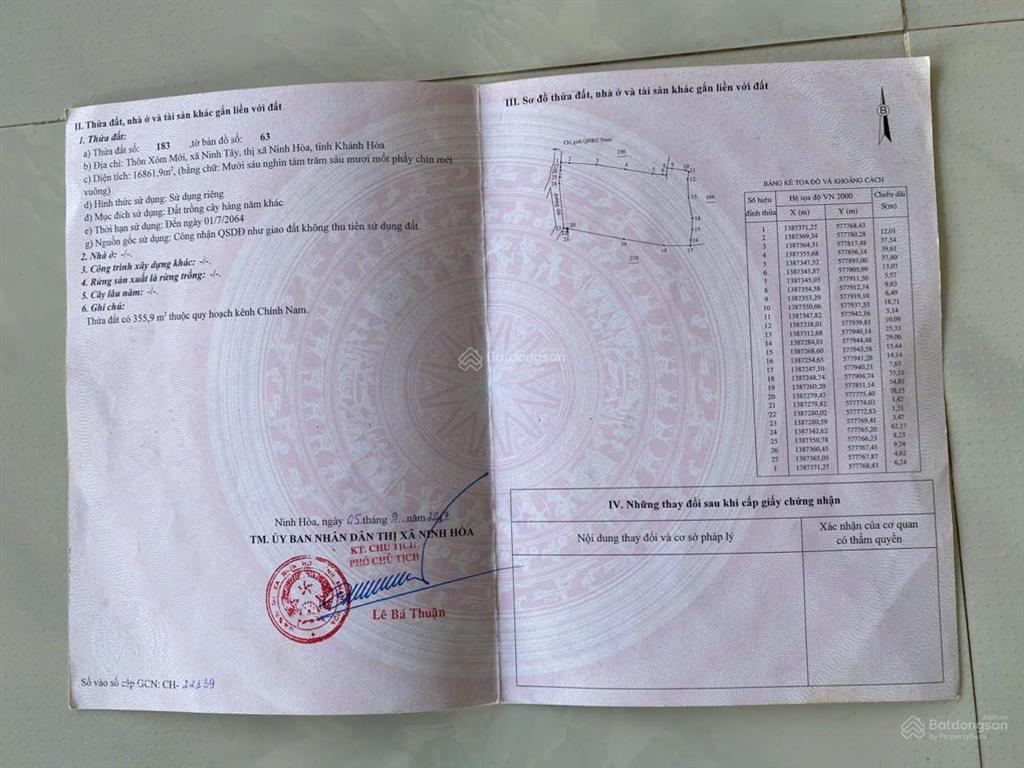 II. Thửa đất, nhà ở và tài sản khác gắn liền với đất
1. Thửa đất:
a) Thửa đất số: 183 ,tờ bản đồ số: 63
b) Địa chỉ: Thôn Xóm Mới, xã Ninh Tây, thị xã Ninh Hòa, tỉnh Khánh Hòa
c) Diện tích: 16861,9m², (bằng chữ: Mười sáu nghìn tám trăm sáu mươi mốt phẩy chín mét
vuông)
d) Hình thức sử dụng: Sử dụng riêng
đ) Mục đích sử dụng: Đất trồng cây hàng năm khác
e) Thời hạn sử dụng: Đến ngày 01/7/2064
g) Nguồn gốc sử dụng: Công nhận QSDĐ như giao đất không thu tiền sử dụng đất.
2. Nhà ở: -/-.
3. Công trình xây dựng khác: -/-.
4. Rừng sản xuất là rừng trồng: -/-.
5. Cây lâu năm: -/-.
6. Ghi chú:
Thửa đất có 355,9 m² thuộc quy hoạch kênh Chính Nam.
Ninh Hòa, ngày 05 tháng 9 năm 2017
TM. ỦY BAN NHÂN DÂN THỊ XÃ NINH HÒA
KT. CHỦ TỊCH
PHÓ CHỦ TỊCH
Lê Bá Thuận
Số vào sổ cấp GCN: CH- 22139
III. Sơ đồ thửa đất, nhà ở và tài sản khác gắn liền với đất
B
Chỉ giới QHKC Nam
196
166
210
BẢNG KÊ TỌA ĐỘ VÀ KHOẢNG CÁCH
Số hiệu đỉnh thửa Hệ tọa độ VN 2000 Chiều dài S(m)
X (m) Y (m)
1 1387371,27 577768,43
12,01
2 1387369,34 577780,28
37,54
3 1387364,31 577817,48
39,61
4 1387355,68 577856,14
37,80
5 1387347,32 577893,00
13,07
6 1387345,87 577905,99
5,57
7 1387345,03 577911,50
9,63
8 1387354,58 577912,74
6,49
9 1387353,29 577919,10
18,71
10 1387350,06 577937,53
5,14
11 1387347,82 577942,16
10,09
12 1387338,01 577939,81
25,33
13 1387312,68 577940,14
29,00
14 1387284,01 577944,48
15,44
15 1387268,60 577943,58
14,14
16 1387254,65 577941,28
7,63
17 1387247,10 577940,21
35,51
18 1387248,74 577904,74
54,81
19 1387260,20 577851,14
78,15
20 1387279,47 577775,40
1,42
21 1387279,82 577774,03
1,21
22 1387280,02 577772,83
3,47
23 1387280,59 577769,41
62,17
24 1387342,62 577765,20
8,23
25 1387350,78 577766,23
9,74
26 1387360,45 577767,37
4,62
27 1387365,05 577767,87
6,24
1 1387371,27 577768,43
IV. Những thay đổi sau khi cấp giấy chứng nhận
Nội dung thay đổi và cơ sở pháp lý
Xác nhận của cơ quan
có thẩm quyền
Batdongsan
Batdongsan
.com.vn
by PropertyGuru